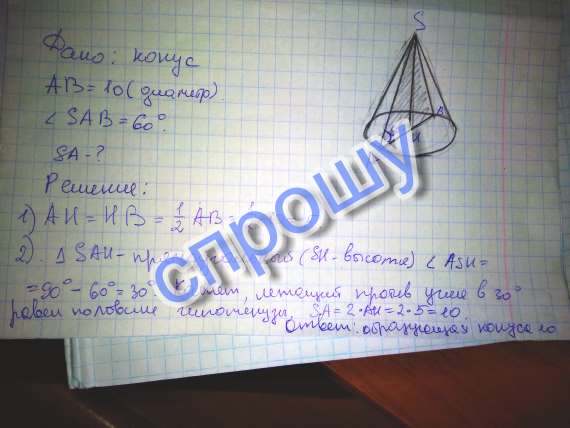 Дано: конус
S
AB = 10 (диаметр).
∠SAB = 60°.
SA - ?
Решение:
1) AH = HB = 1/2 AB =
2). Δ SAH - (SH - высота) ∠ ASH =
= 90° - 60° = 30° Катет, лежащий против угла в 30°
равен половине гипотенузы, SA = 2·AH = 2·5 = 10.
Ответ: образующая конуса 10
спрошу